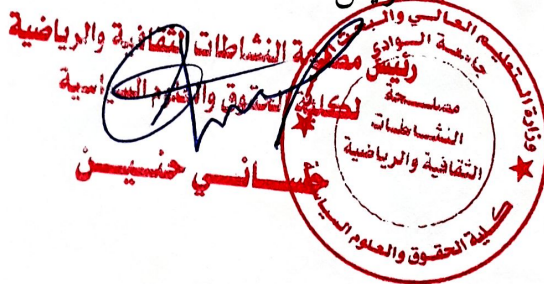 رئيس مصلحة النشاطات الثقافية والرياضية
لكلية الحقوق والعلوم السياسية
حنين
وزارة التعليم العالي والبحث
جامعة الوادي
مصلحة
النشاطات
الثقافية والرياضية
كلية الحقوق والعلوم السياسية